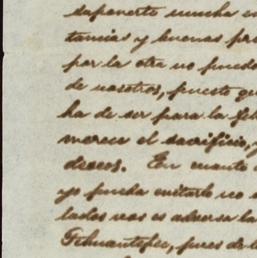 suponerte mucha en
tancia y buenos pri
por la otra no puedo
de nosotros, puesto qu
ha de ser para la fel
merece el sacrificio, y
deseos. En cuanto a
yo pueda evitarlo no s
lados nos es adversa la
Tehuantepec, pues de l